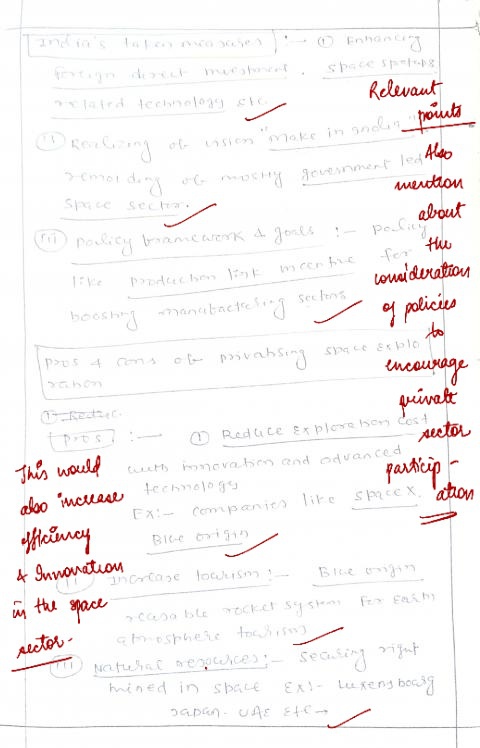 India's taken measures :- ① Enhancing
foreign direct investment, space startups
related technology etc.
Relevant
points
ii) Realizing of vision "make in India"
remolding of mostly government led
space sector.
Also
mention
about
the
consideration
of policies
to
encourage
private
sector
particip-
ation
iii) policy framework & goals :- policy
like production link incentive for
boosting manufacturing sectors
pros & cons of privatising space explo
ration
① Reduc.
pros :- ① Reduce Exploration cost
with innovation and advanced
technology
Ex:- companies like space X,
Blue origin
This would
also increase
efficiency
& Innovation
in the space
sector.
ii) Increase tourism :- Blue origin
reusable rocket system for Earth
atmosphere tourism
iii) Natural resources :- Securing right
mined in space Ex:- Luxensboarg
Japan. UAE Etc →